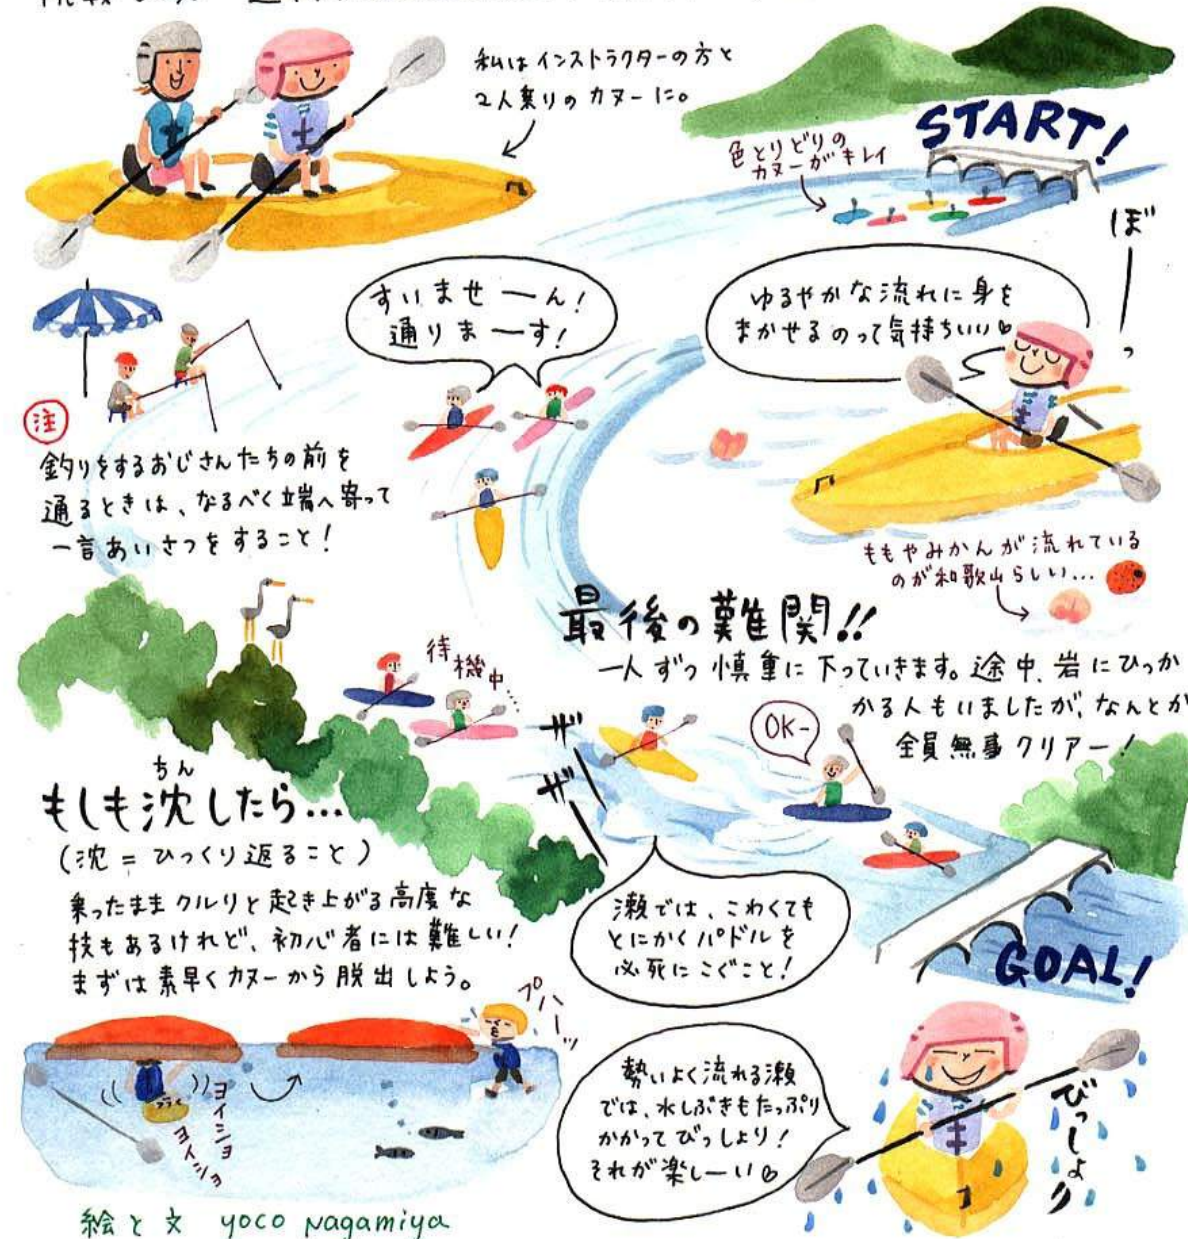 私はインストラクターの方と
2人乗りのカヌーに。
START!
色とりどりの
カヌーがキレイ
ぼーっ
すいませーん!
通りまーす!
ゆるやかな流れに身を
まかせるのって気持ちいい♡
注
釣りをするおじさんたちの前を
通るときは、なるべく端へ寄って
一言あいさつをすること!
ももやみかんが流れている
のが和歌山らしい...
最後の難関!!
一人ずつ慎重に下っていきます。途中、岩にひっか
かる人もいましたが、なんとか
全員無事クリアー!
待機中...
ザザー
OK-
ちん
もしも沈したら...
(沈=ひっくり返ること)
乗ったままクルリと起き上がる高度な
技もあるけれど、初心者には難しい!
まずは素早くカヌーから脱出しよう。
瀬では、こわくても
とにかくパドルを
必死にこぐこと!
GOAL!
プハーッ
ヨイショ
ヨイショ
勢いよく流れる瀬
では、水しぶきもたっぷり
かかってびっしょり!
それが楽しーい♡
びっしょり
絵と文 yoco Nagamiya